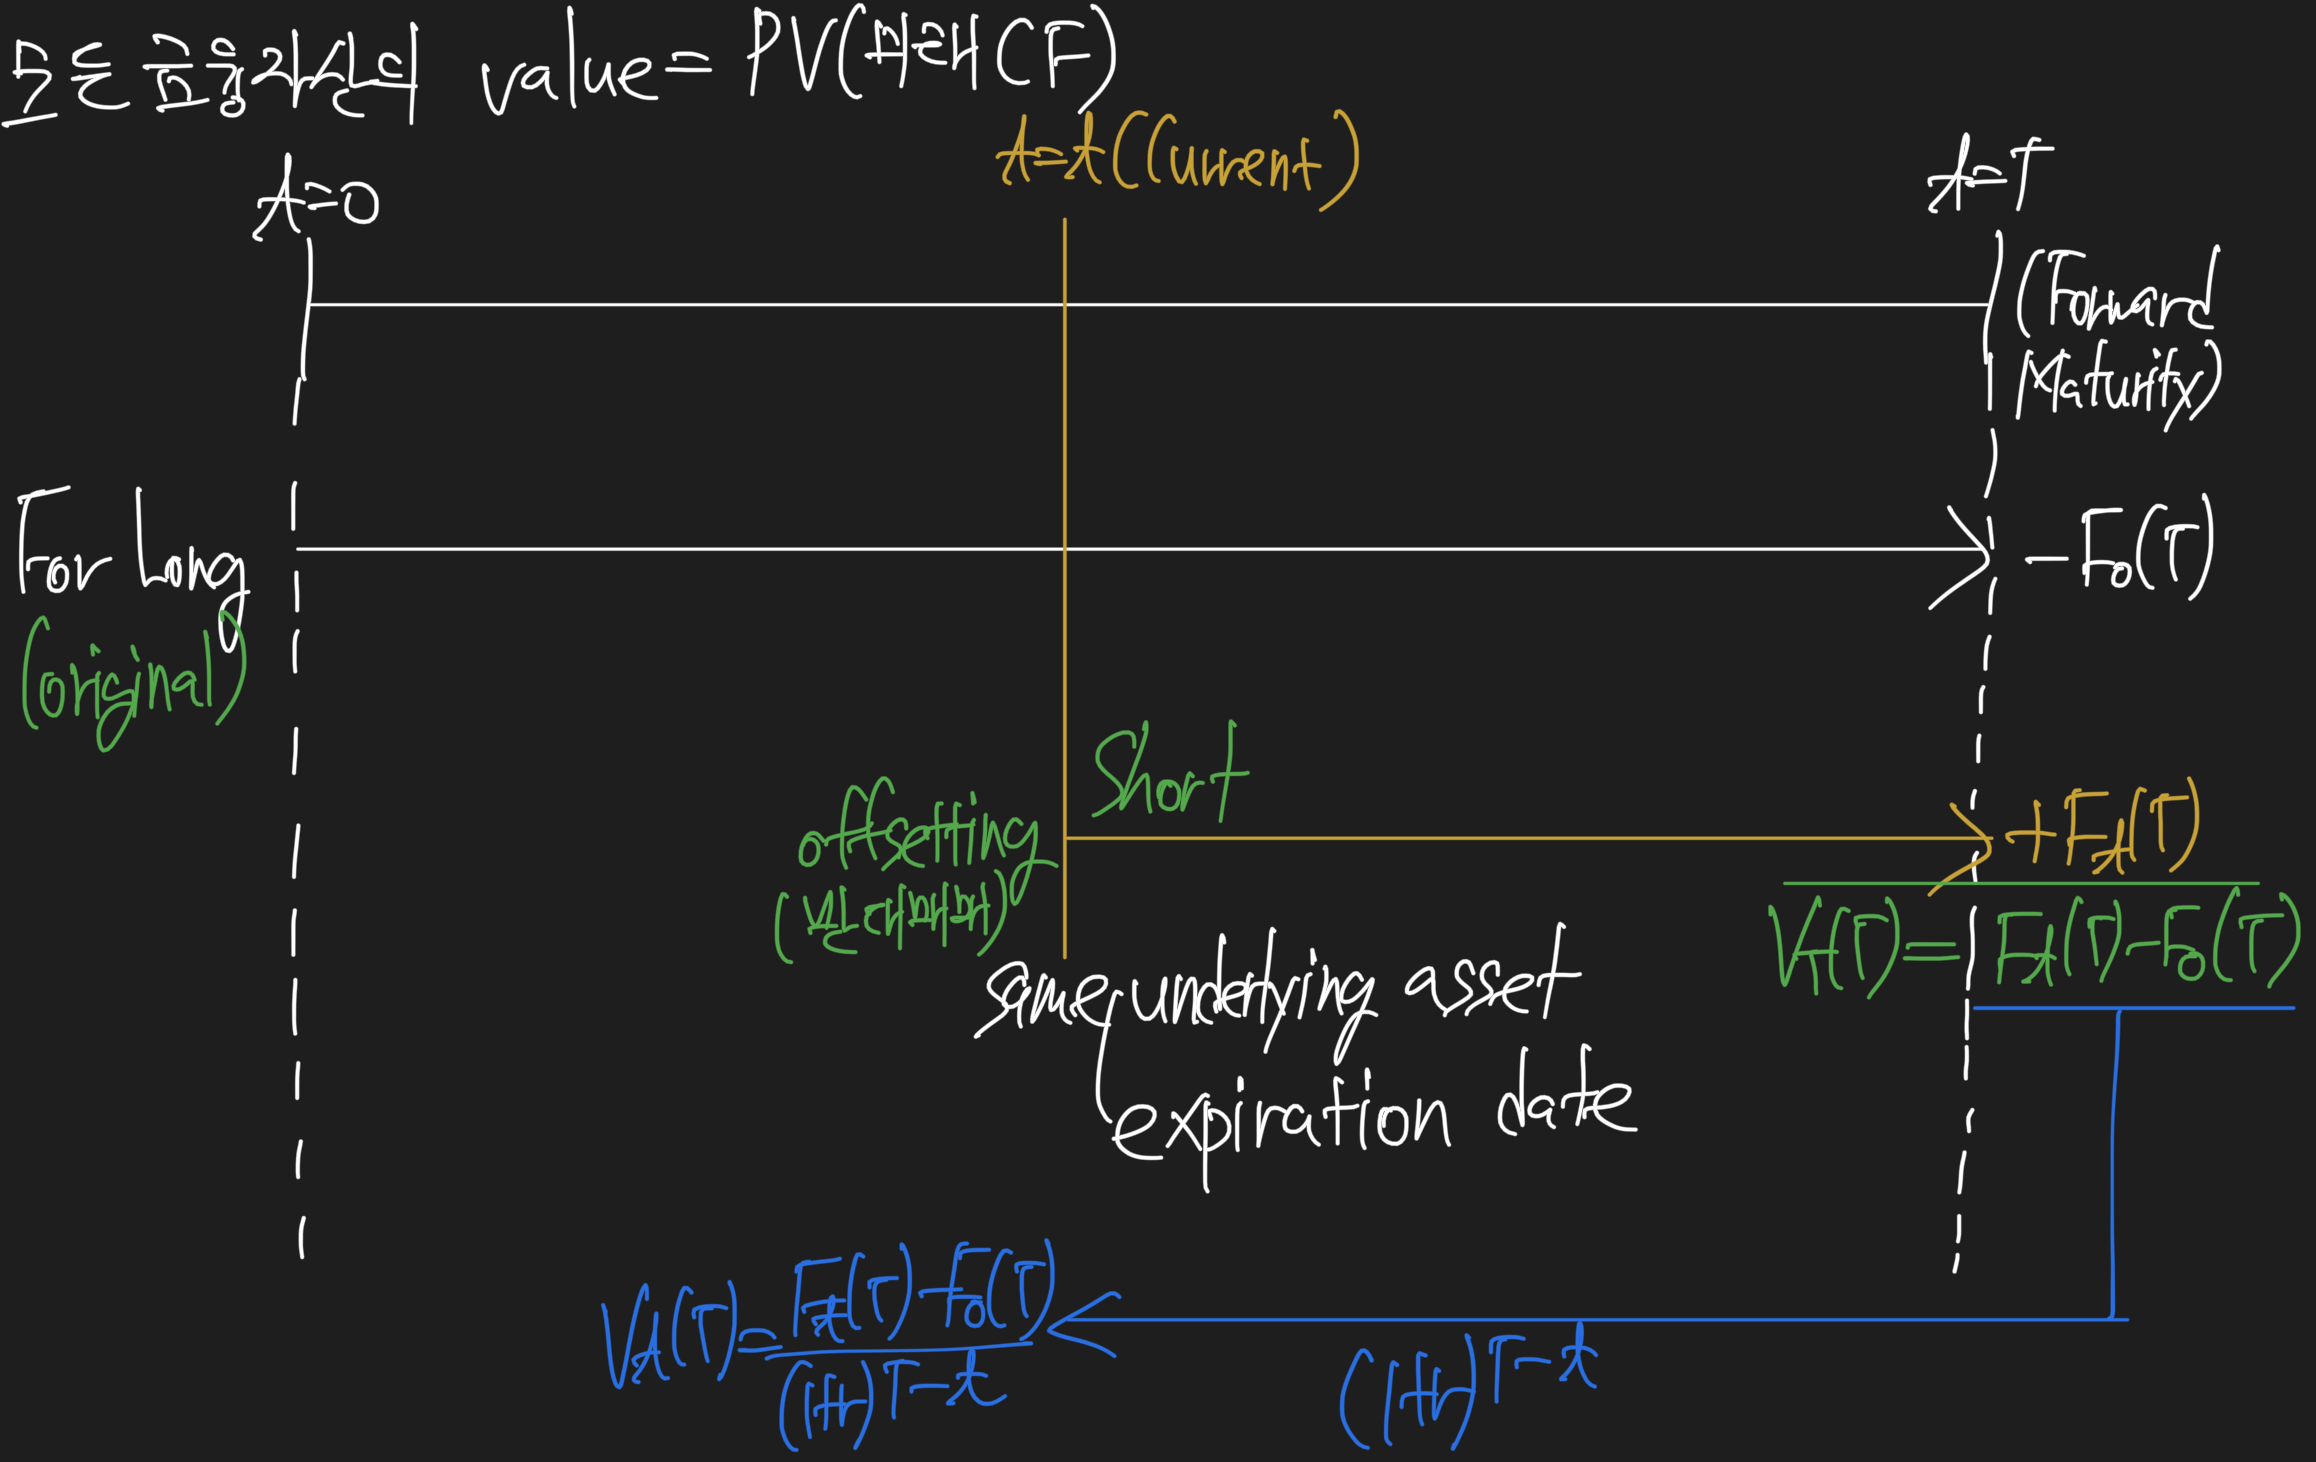 모든 금융자산의 value = PV(미래 CF)
t=t (Current)
t=0
t=T
(Forward
Maturity)
For Long
-F₀(T)
(original)
Short
offsetting
+Fₜ(T)
V_T(T) = Fₜ(T) - F₀(T)
same underlying asset
expiration date
Vₜ(T) = (Fₜ(T) - F₀(T)) / (1+r)^(T-t)
(1+r)^(T-t)